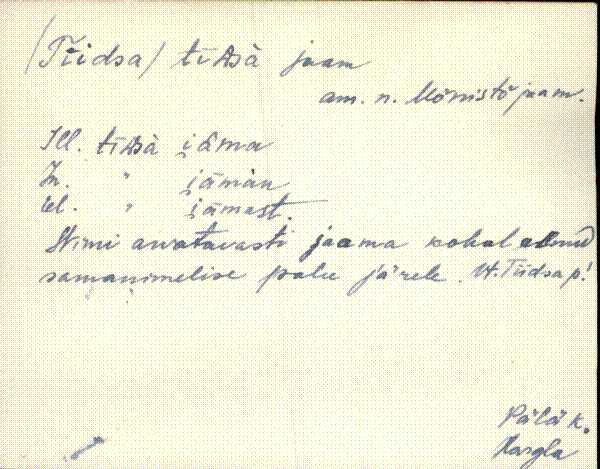 (Tiidsa) tīdsä jaam
am. n. Mõnistõ jaam.
Ill. tīdsä jāma
In. " jāmàn
El. " jāmast.
Nimi arvatavasti jaama kohal olnud
samanimelise palu järele. Vt. Tiidsa p!
Pälä k.
Hargla